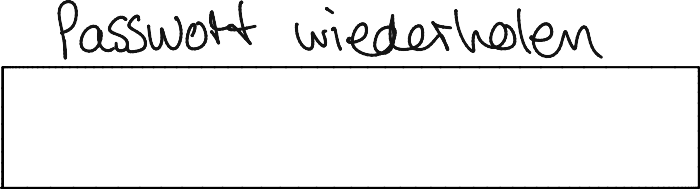 Passwort wiederholen